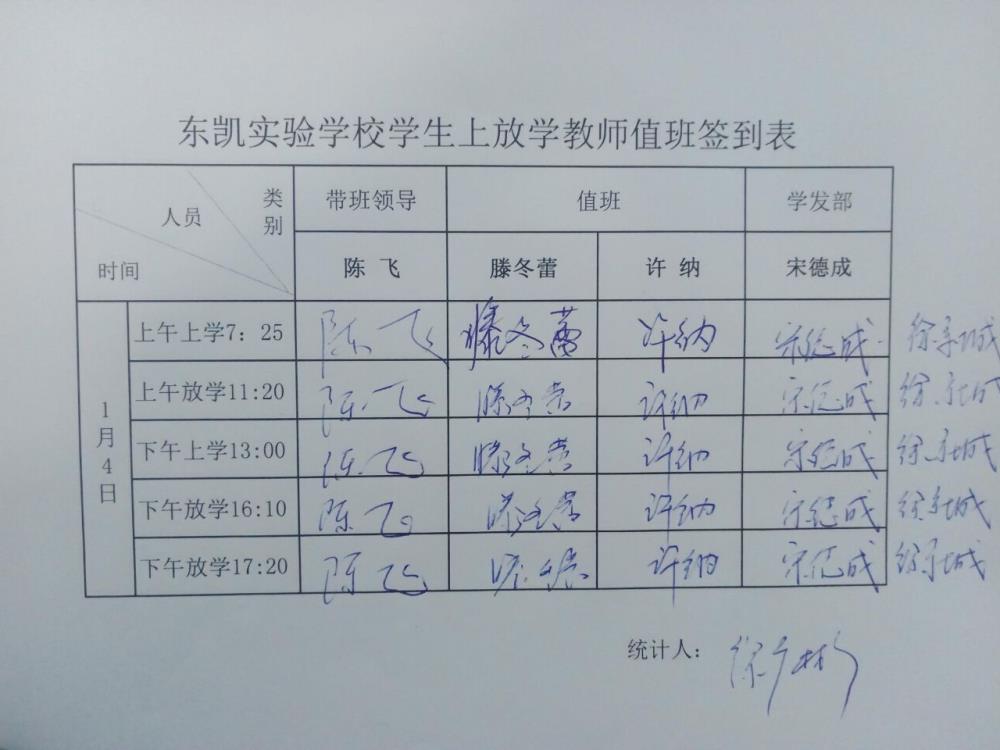 东凯实验学校学生上放学教师值班签到表
类别 人员 时间 带班领导 值班 学发部
陈 飞 滕冬蕾 许 纳 宋德成
1月4日
上午上学7：25 陈飞 滕冬蕾 许纳 宋德成
上午放学11:20 陈飞 滕冬蕾 许纳 宋德成
下午上学13:00 陈飞 滕冬蕾 许纳 宋德成
下午放学16:10 陈飞 滕冬蕾 许纳 宋德成
下午放学17:20 陈飞 滕冬蕾 许纳 宋德成
统计人：